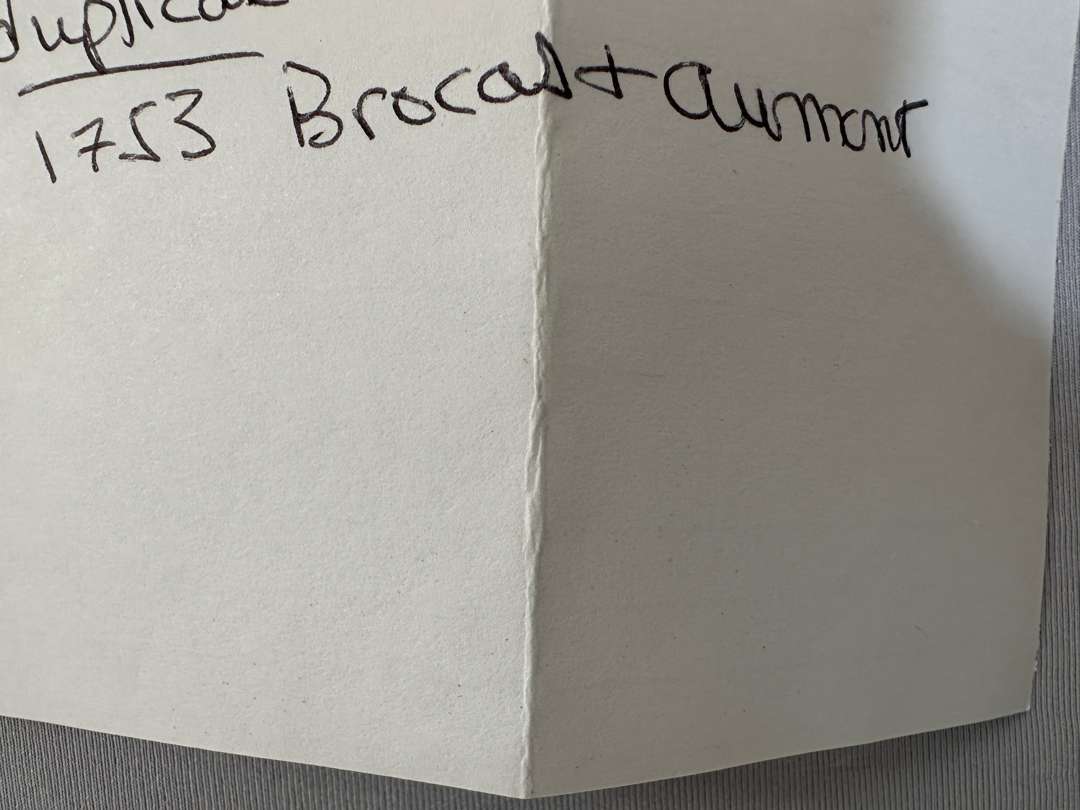 duplicat
1753 Brocas + Aumont